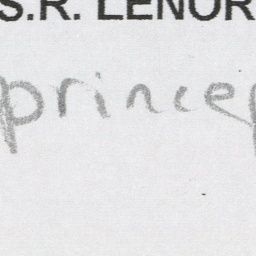 S.R. LENOR
princep